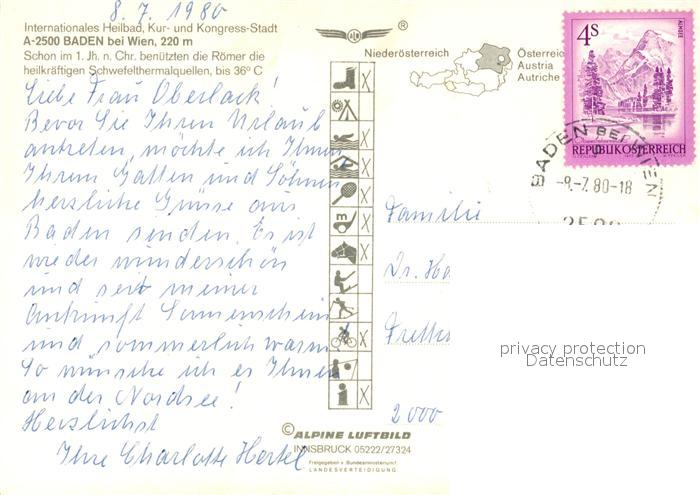 8. 7. 1980
Internationales Heilbad, Kur- und Kongress-Stadt
A-2500 BADEN bei Wien, 220 m
Schon im 1. Jh. n. Chr. benützten die Römer die
heilkräftigen Schwefelthermalquellen, bis 36° C
Liebe Frau Oberlack!
Bevor Sie Ihren Urlaub
antreten, möchte ich Ihnen
Ihrem Gatten und Söhnen
herzliche Grüsse aus
Baden senden. Es ist
wieder wunderschön
und seit meiner
Ankunft Sonnenschein
und sommerlich warm.
So wünsche ich es Ihnen
an der Nordsee!
Herzlichst
Ihre Charlotte Hertel
®
Niederösterreich
Österreich
Austria
Autriche
ALMSEE
4S
REPUBLIK ÖSTERREICH
BADEN BEI WIEN
-9.-7. 80-18
2500
Familie
Dr. Ha
2000
privacy protection
Datenschutz
© ALPINE LUFTBILD
INNSBRUCK 05222/27324
Freigegeben v. Bundesministerium f.
LANDESVERTEIDIGUNG